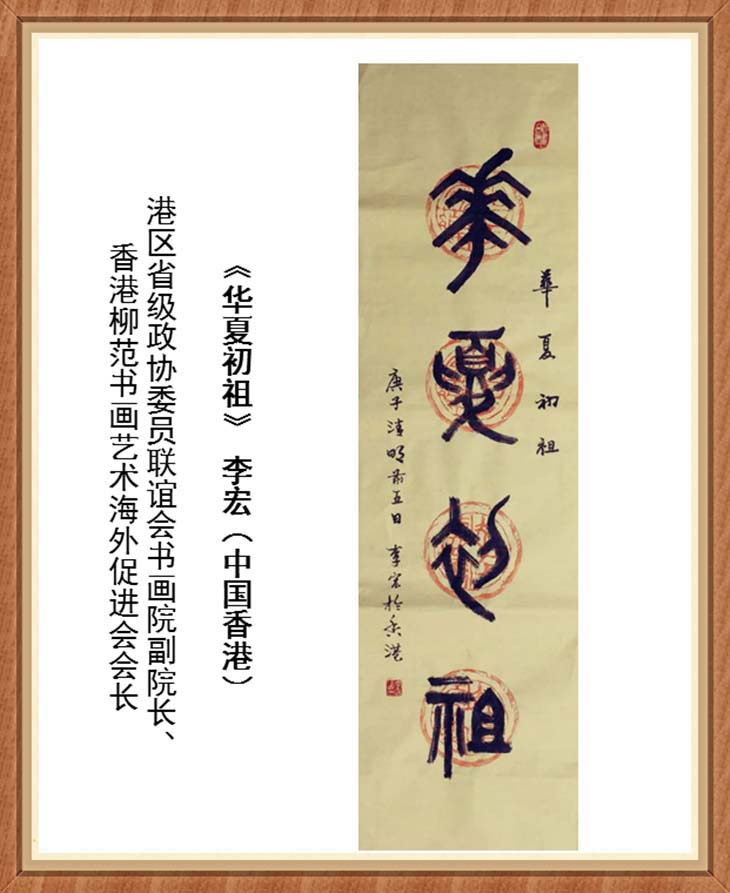 華夏初祖
華夏初祖
庚子清明前五日 李宏於香港
《华夏初祖》 李宏（中国香港）
港区省级政协委员联谊会书画院副院长、
香港柳范书画艺术海外促进会会长